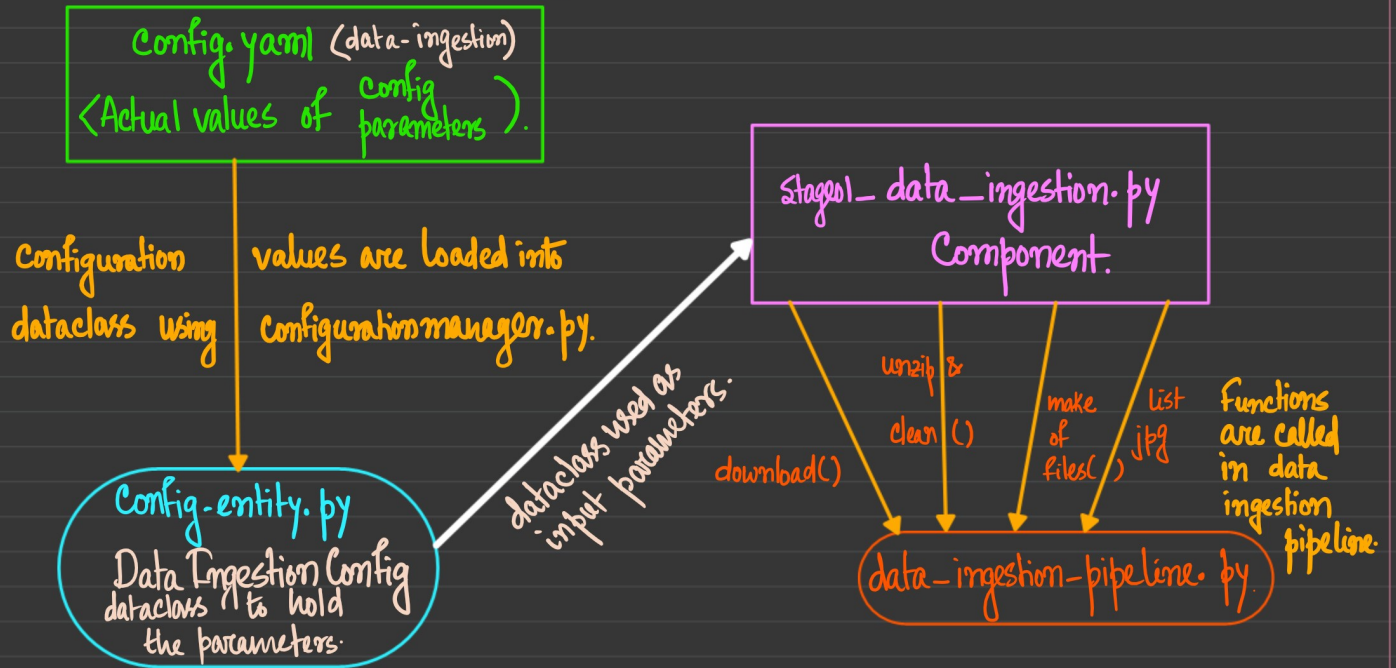 Config.yaml (data-ingestion)
(Actual values of config parameters).
Configuration values are loaded into
dataclass using Configurationmanager.py.
Config-entity.py
Data Ingestion Config
dataclass to hold
the parameters.
dataclass used as
input parameters.
Stage01_data_ingestion.py
Component.
download()
unzip &
clean ()
make list
of jpg
files( )
Functions
are called
in data
ingestion
pipeline.
data_ingestion_pipeline.py